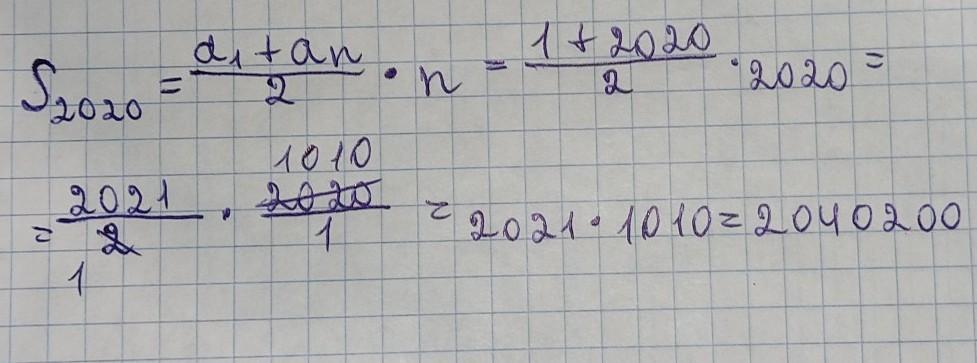 S₂₀₂₀ = (a₁ + aₙ)/2 · n = (1 + 2020)/2 · 2020 =
1010
= 2021/2 · 2020/1 = 2021 · 1010 = 2040200
1